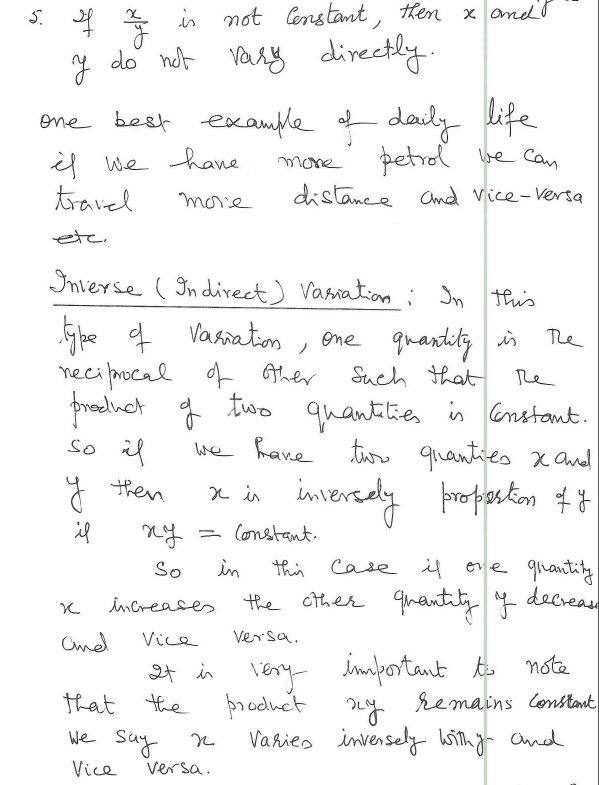 5. If x/y is not Constant, then x and
y do not vary directly.
one best example of daily life
if we have more petrol we can
travel more distance and vice-versa
etc.
Inverse (Indirect) Variation : In this
type of Variation, one quantity is the
reciprocal of other such that the
product of two quantities is Constant.
So if we have two quanties x and
y then x is inversely proportion of y
if xy = Constant.
So in this case if one quantity
x increases the other quantity y decrease
and vice versa.
It is very important to note
that the product xy remains Constant
We say x varies inversely with y and
Vice versa.